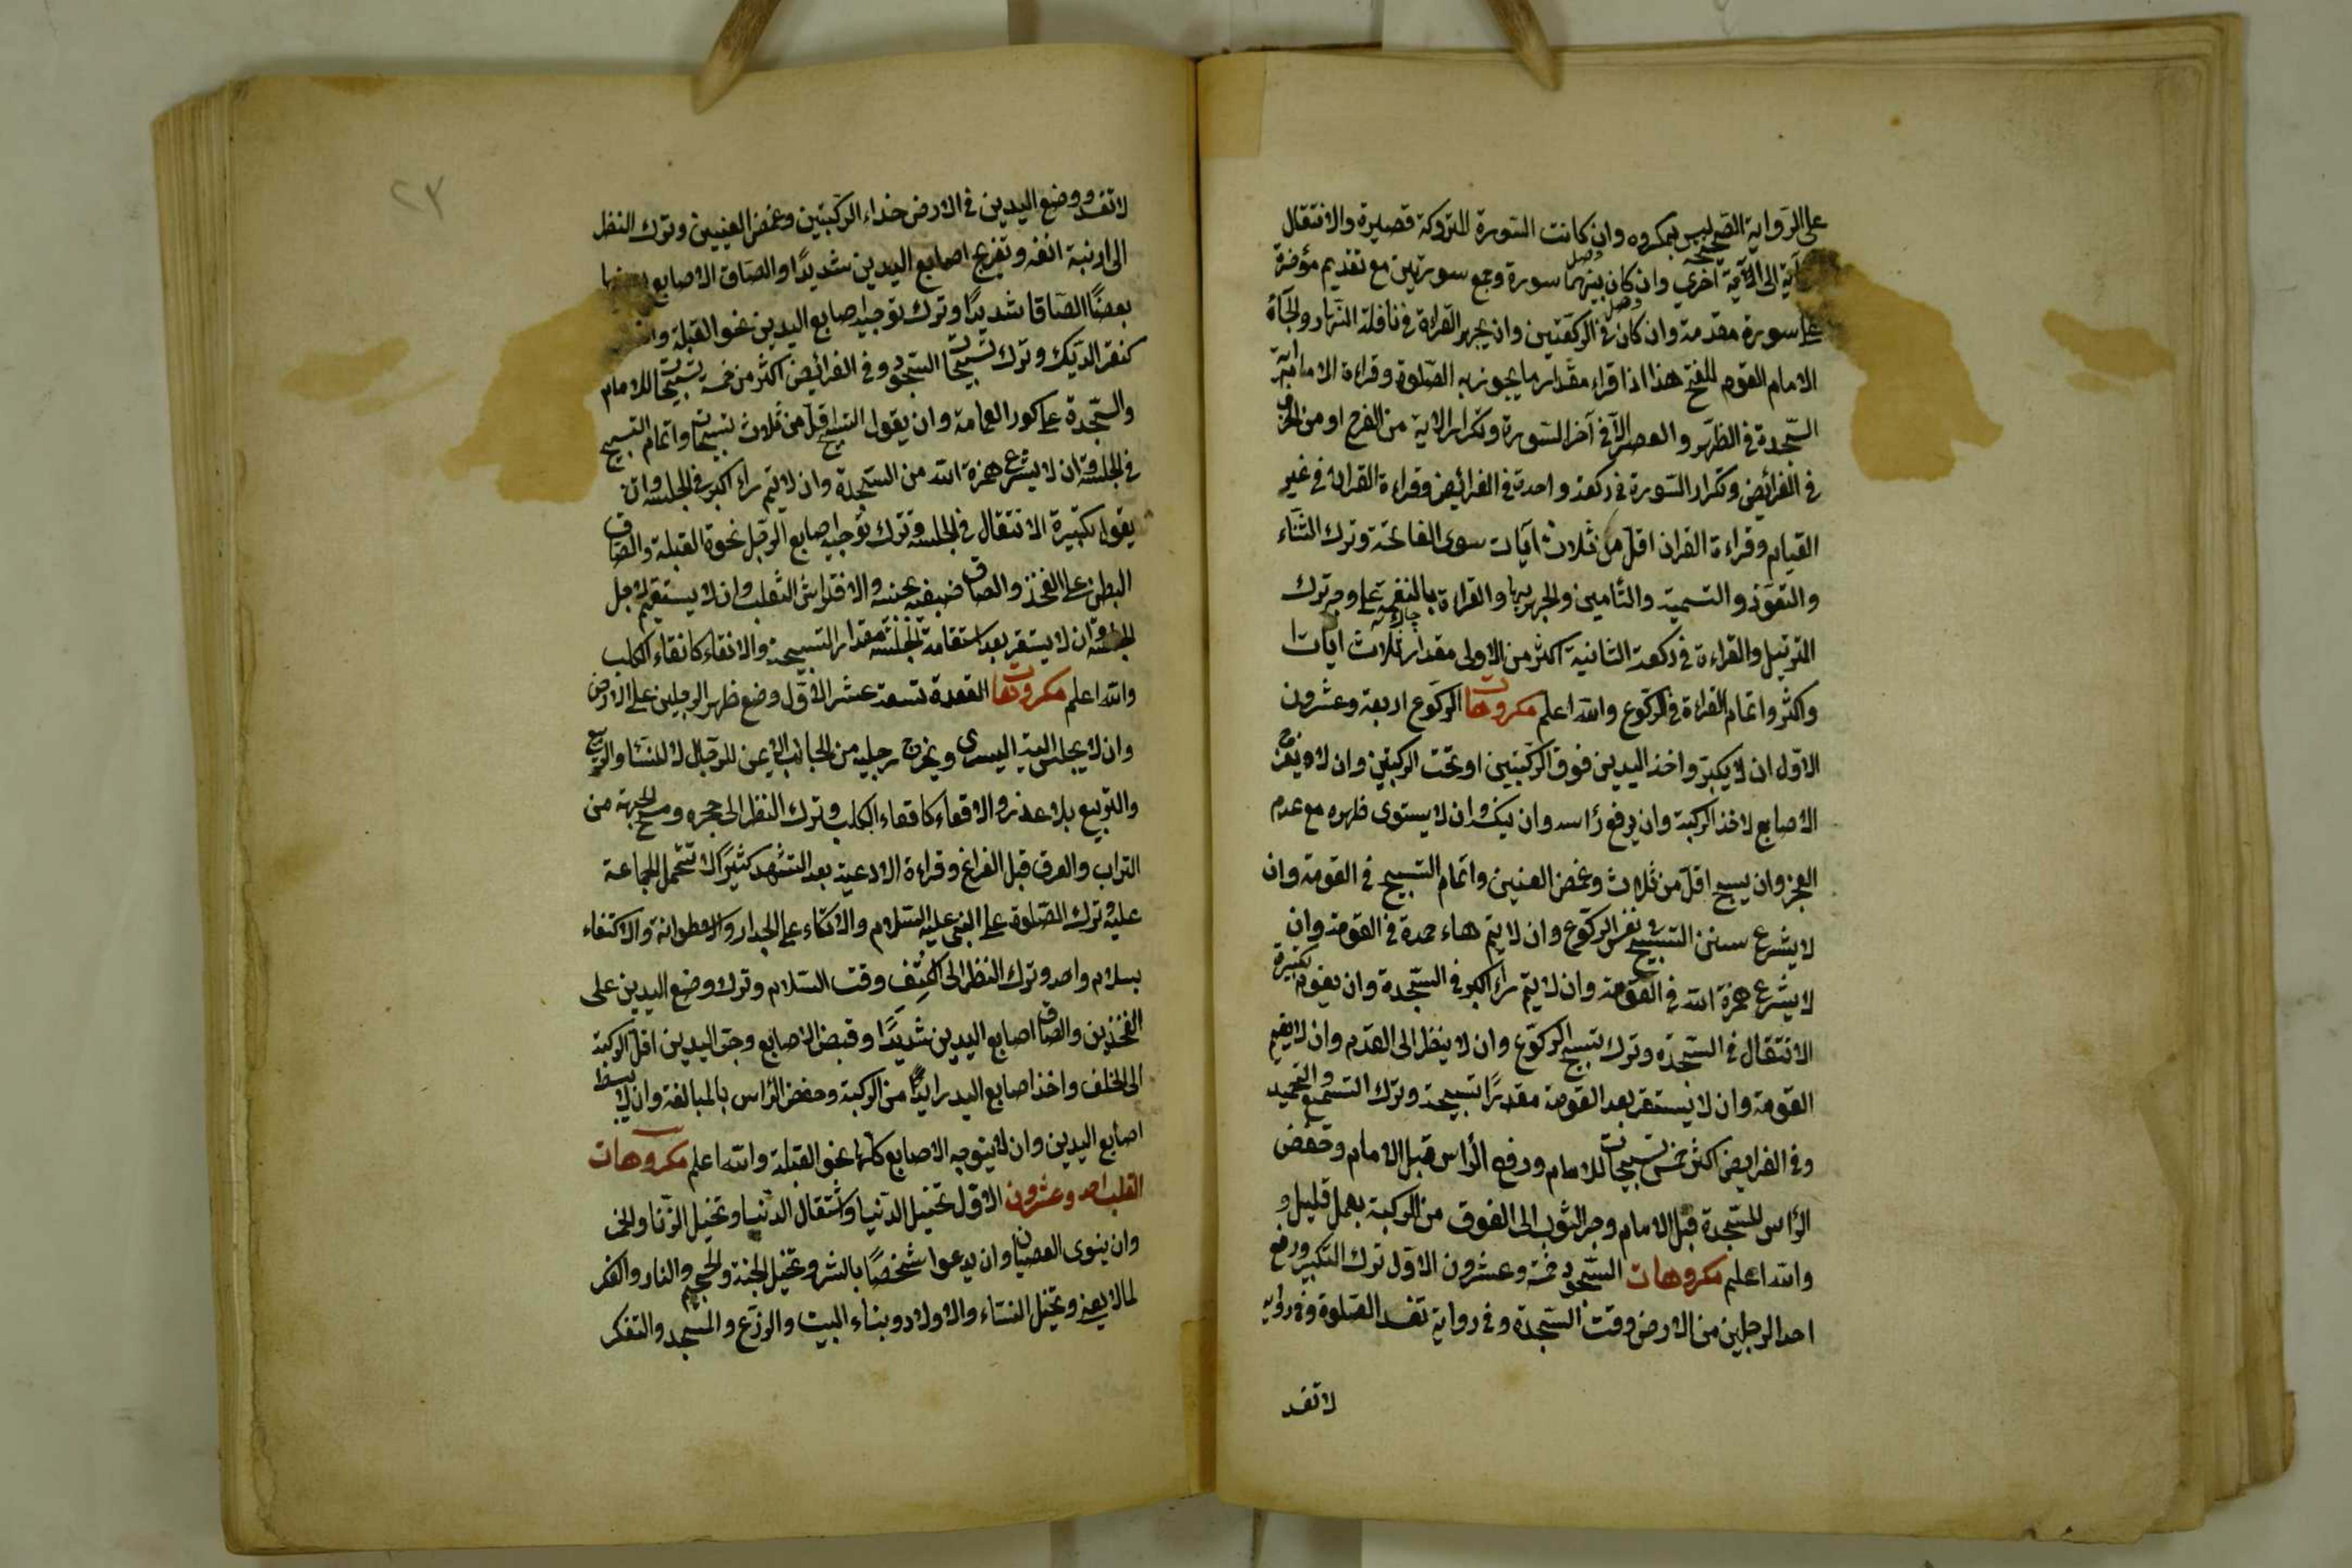 على الرواية الصحيحة ليس بمكروه وان كانت السورة المتروكة قصيرة والانتقال
آية الى الآية اخرى وان كان بينهما فصل سورة وجمع سورتين مع تقديم مؤخرة
على سورة مقدمة وان كان فصل في الركعتين وان يجهر القراءة في نافلة النهار ولجأة
الامام القوم للفتح هذا اذا قراء مقدار ما يجوز به الصلوة وقراءة الامام آية
السجدة في الظهر والعصر الا في آخر السورة وتكرار الاية من الفرح او من الحزن
في الفرائض وتكرار السورة في ركعة واحدة في الفرائض وقراءة القران في غير
القيام وقراءة القران اقل من ثلاث آيات سوى الفاتحة وترك الثناء
والتعوذ والتسمية والتأمين والجهر بها والقراءة بالنغمة على وجه ترك
الترتيل والقراءة في ركعة الثانية اكثر من الاولى مقدار ثلاث ايات
واكثر واتمام القراءة في الركوع والله اعلم مكروهات الركوع اربعة وعشرون
الاول ان لا يكبر واخذ اليدين فوق الركبتين او تحت الركبتين وان لا يفرج
الاصابع لاخذ الركبة وان يرفع رأسه وان ينكس وان لا يستوى ظهره مع عدم
العجز وان يسبح اقل من ثلاث وغمض العينين واتمام التسبيح في القومة وان
لا يشرع سنن التسبيح في نفس الركوع وان لا يتم هاء حمده في القومة وان
لا يشرع همزة الله في القومة وان لا يتم راء اكبر في السجدة وان يقول تكبيرة
الانتقال في السجدة وترك تسبيح الركوع وان لا ينظر الى القدم وان لا يقيم
القومة وان لا يستقر بعد القومة مقدرا تسبيحة وترك التسميع والتحميد
وفي الفرايض اكثر خمس تسبيحات للامام ورفع الرأس قبل الامام وخفض
الرأس للسجدة قبل الامام وجر الثوب الى الفوق من الركبة بعمل قليل و
والله اعلم مكروهات السجود خمسة وعشرون الاول ترك التكبير ورفع
احد الرجلين من الارض وقت السجدة وفي رواية تفسد الصلوة وفي رواية
لا تفسد
٢٣
لا تفسد ووضع اليدين في الارض حذاء الركبتين وغمض العينين وترك النظر
الى ارنبة انفه وتفريج اصابع اليدين شديدًا والصاق الاصابع بعضها
بعضًا الصاقا شديدًا وترك توجيه اصابع اليدين نحو القبلة
كنقر الديك وترك تسبيحات السجود وفي الفرائض اكثر من خمسة تسبيحات للامام
والسجدة على كور العمامة وان يقول التسبيح اقل من ثلاث تسبيحات واتمام التسبيح
في الجلسة وان لا يشرع همزة الله من السجدة وان لا يتم راء اكبر في الجلسة وان
يقول تكبيرة الانتقال في الجلسة وترك توجيه اصابع الرجل نحوة القبلة والصاق
البطن على الفخذ والصاق ضبعيه بجنبه والافتراش الثعلب وان لا يستقيم لاجل
الجلسة وان لا يستقر بعد استقامة الجلسة مقدار التسبيحة والاقعاء كاقعاء الكلب
والله اعلم مكروهات القعدة تسعة عشر الاول وضع ظهر الرجلين على الارض
وان لا يجلس الية اليسرى ويخرج رجليه من الجانب الايمن للرجال لا للنساء والربع
والتربيع بلا عذر والاقعاء كاقعاء الكلب وترك النظر الى حجره ومسح الجبهة من
التراب والعرق قبل الفراغ وقراءة الادعية بعد التشهد كثيرًا لا تتحمل الجماعة
عليه وترك الصلوة على النبى عليه السلام والاتكاء على الجدار والاسطوانة والاكتفاء
بسلام واحد وترك النظر الى الكتف وقت السلام وترك وضع اليدين على
الفخذين والصاق اصابع اليدين شديدًا وقبض الاصابع وجر اليدين اقل الركبة
الى الخلف واخذ اصابع اليد زايدًا من الركبة وخفض الرأس بالمبالغة وان لا يبسط
اصابع اليدين وان لا يتوجه الاصابع كلها نحو القبلة والله اعلم مكروهات
القلب احد وعشرون الاول تخييل الدنيا واشتغال الدنيا وتخييل الزنا والخمر
وان ينوى العصيان وان يدعوا شخصًا بالشر وتخييل الجنة والجحيم والنار والفكر
لما لا يعنى وتخييل النساء والاولاد وبناء البيت والزرع والمسجد والتفكر